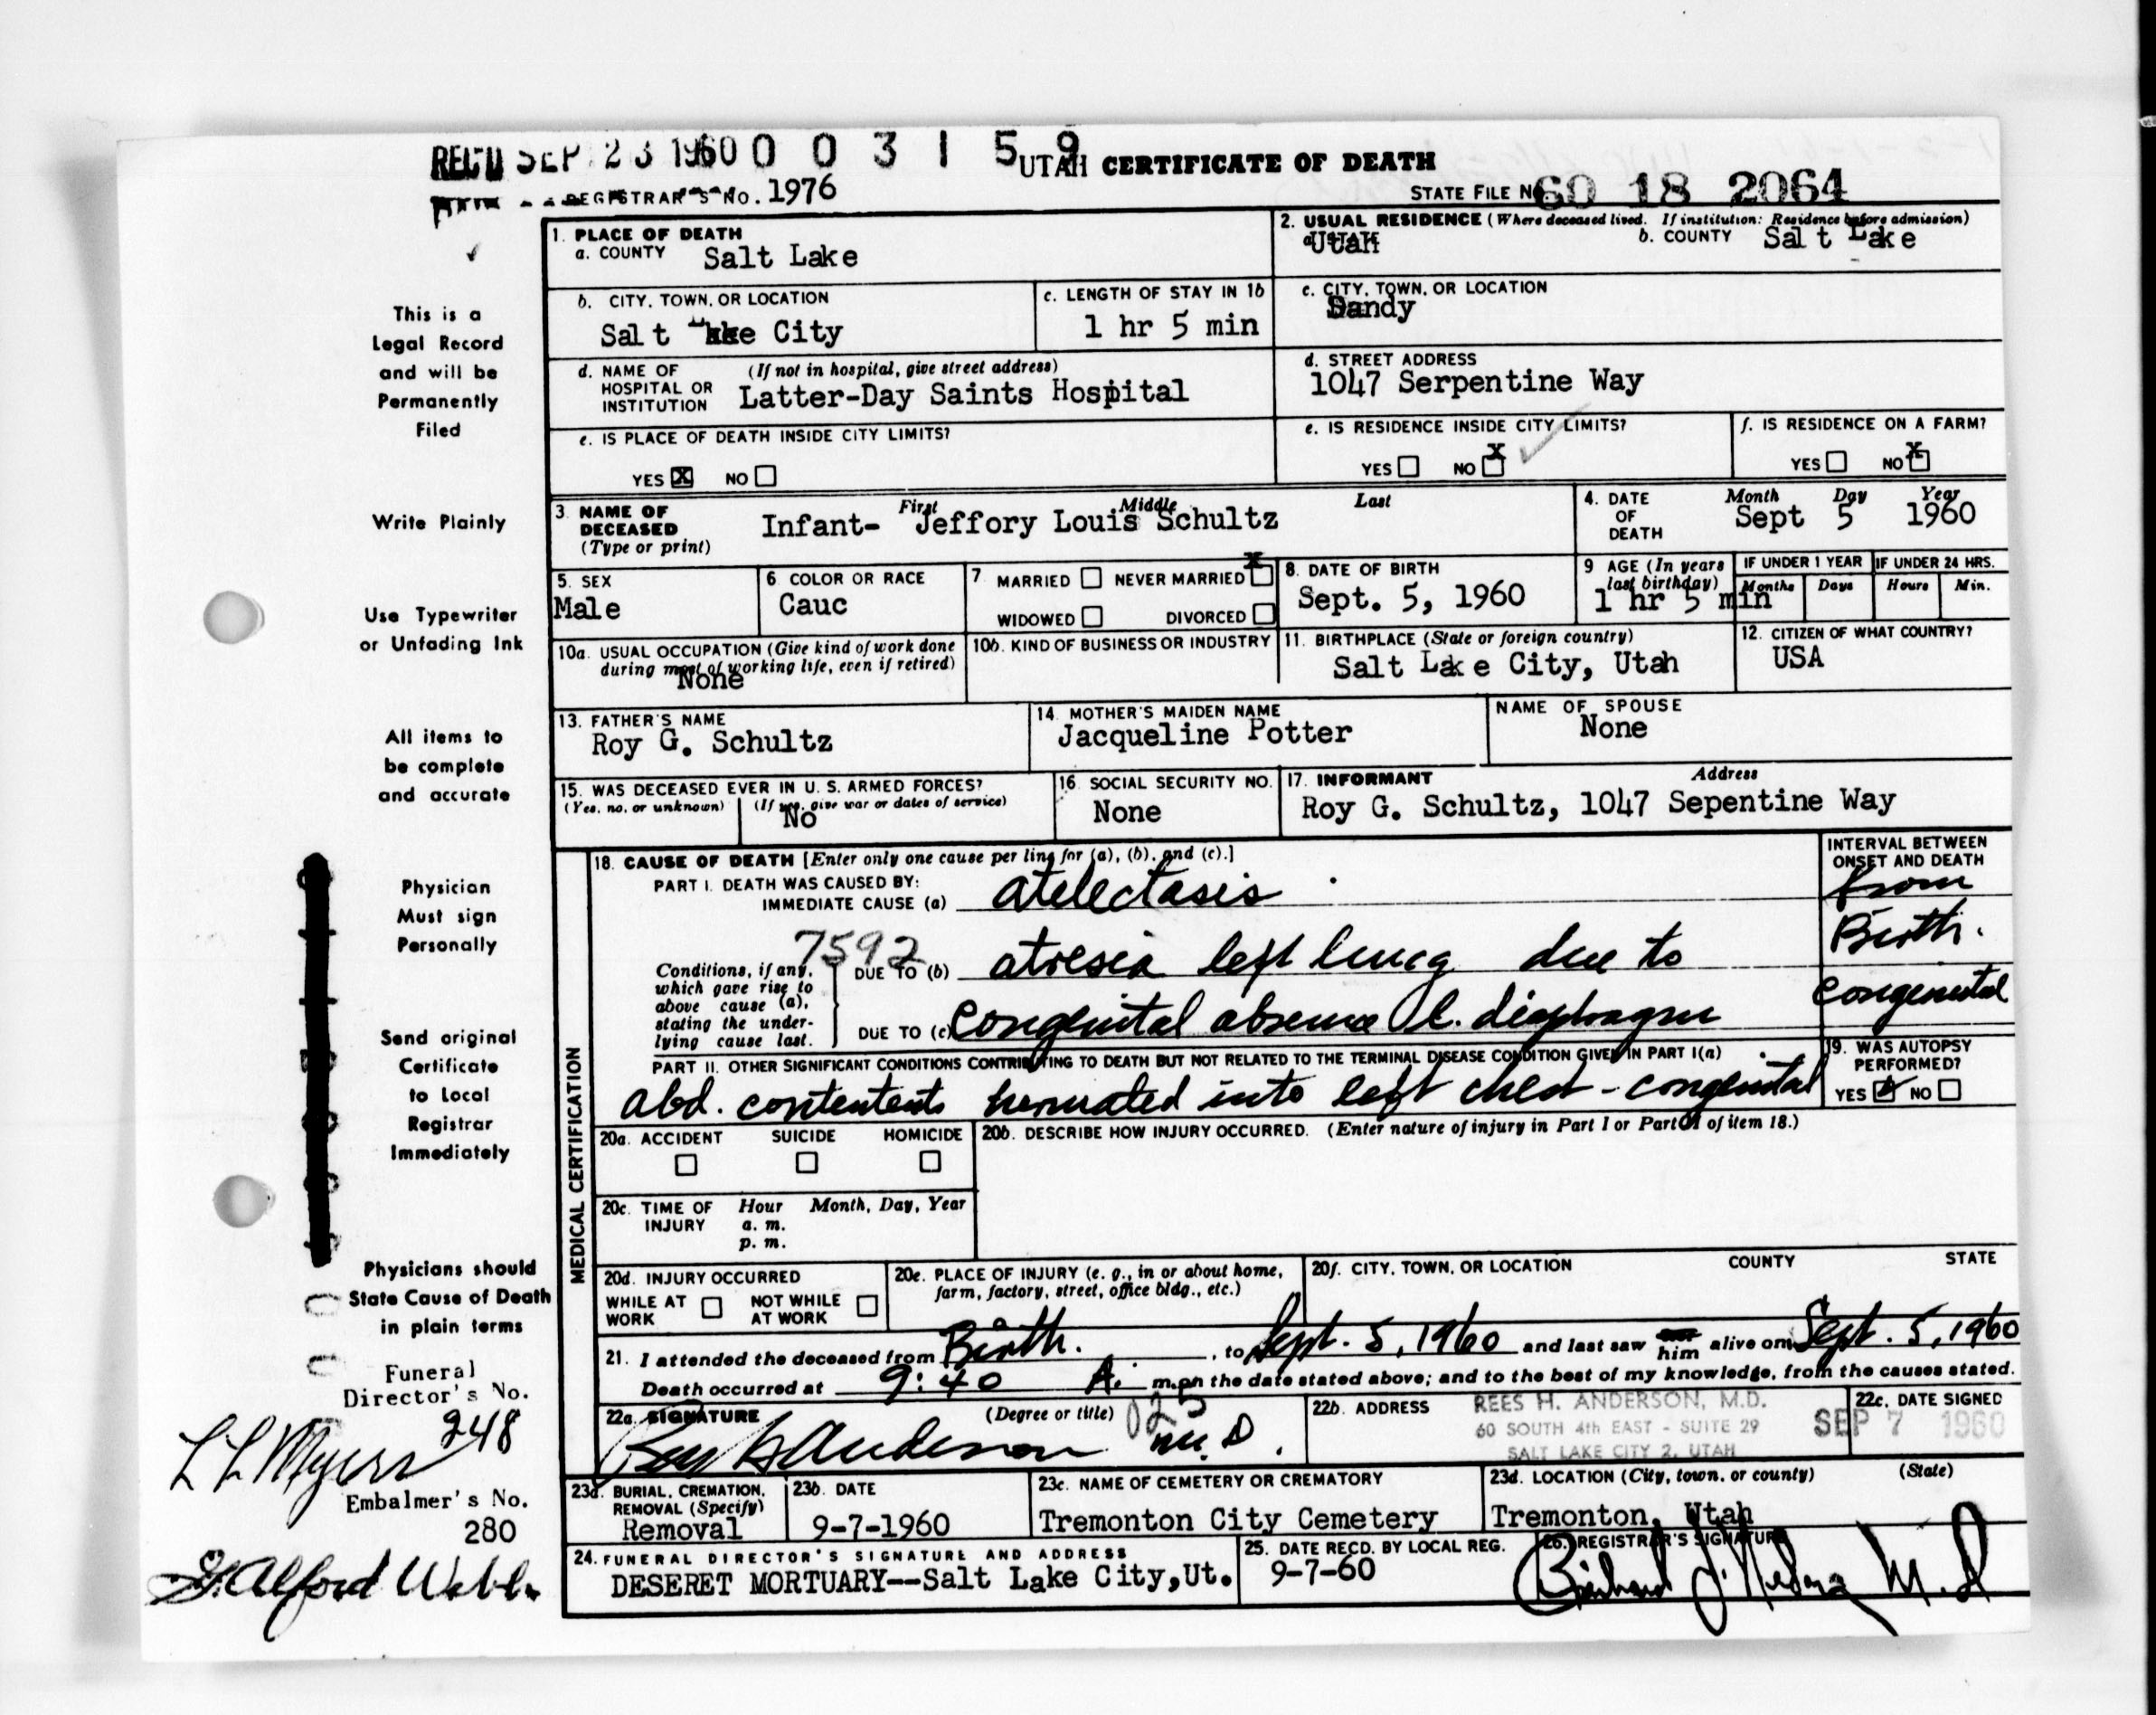 REC'D SEP 23 1960 0 0 3 1 5 9 UTAH CERTIFICATE OF DEATH
REGISTRAR'S NO. 1976
STATE FILE No 60 18 2064
This is a
Legal Record
and will be
Permanently
Filed
Write Plainly
Use Typewriter
or Unfading Ink
All items to
be complete
and accurate
Physician
Must sign
Personally
Send original
Certificate
to Local
Registrar
Immediately
Physicians should
State Cause of Death
in plain terms
Funeral
Director's No.
248
L L Myers
Embalmer's No.
280
G. Alford Webb
1. PLACE OF DEATH
a. COUNTY Salt Lake
2. USUAL RESIDENCE (Where deceased lived. If institution: Residence before admission)
Utah b. COUNTY Salt Lake
b. CITY, TOWN, OR LOCATION
Salt Lake City
c. LENGTH OF STAY IN 1b
1 hr 5 min
c. CITY, TOWN, OR LOCATION
Sandy
d. NAME OF HOSPITAL OR INSTITUTION (If not in hospital, give street address)
Latter-Day Saints Hospital
d. STREET ADDRESS
1047 Serpentine Way
e. IS PLACE OF DEATH INSIDE CITY LIMITS?
YES X NO
e. IS RESIDENCE INSIDE CITY LIMITS?
YES NO X
f. IS RESIDENCE ON A FARM?
YES NO X
3. NAME OF DECEASED (Type or print) First Middle Last
Infant- Jeffory Louis Schultz
4. DATE OF DEATH Month Day Year
Sept 5 1960
5. SEX
Male
6. COLOR OR RACE
Cauc
7. MARRIED NEVER MARRIED X
WIDOWED DIVORCED
8. DATE OF BIRTH
Sept. 5, 1960
9. AGE (In years last birthday)
1 hr 5 min
IF UNDER 1 YEAR IF UNDER 24 HRS.
Months Days Hours Min.
10a. USUAL OCCUPATION (Give kind of work done during most of working life, even if retired)
None
10b. KIND OF BUSINESS OR INDUSTRY
11. BIRTHPLACE (State or foreign country)
Salt Lake City, Utah
12. CITIZEN OF WHAT COUNTRY?
USA
13. FATHER'S NAME
Roy G. Schultz
14. MOTHER'S MAIDEN NAME
Jacqueline Potter
NAME OF SPOUSE
None
15. WAS DECEASED EVER IN U. S. ARMED FORCES?
(Yes, no, or unknown) (If yes, give war or dates of service)
No
16. SOCIAL SECURITY NO.
None
17. INFORMANT Address
Roy G. Schultz, 1047 Sepentine Way
MEDICAL CERTIFICATION
18. CAUSE OF DEATH [Enter only one cause per line for (a), (b), and (c).]
PART I. DEATH WAS CAUSED BY:
IMMEDIATE CAUSE (a) atelectasis
7592
Conditions, if any, which gave rise to above cause (a), stating the underlying cause last.
DUE TO (b) atresia left lung due to
DUE TO (c) Congenital absence l. diaphragm
INTERVAL BETWEEN ONSET AND DEATH
from
Birth.
Congenital
PART II. OTHER SIGNIFICANT CONDITIONS CONTRIBUTING TO DEATH BUT NOT RELATED TO THE TERMINAL DISEASE CONDITION GIVEN IN PART I(a)
abd. contentents herniated into left chest - congenital
19. WAS AUTOPSY PERFORMED?
YES NO
20a. ACCIDENT SUICIDE HOMICIDE
20b. DESCRIBE HOW INJURY OCCURRED. (Enter nature of injury in Part I or Part II of item 18.)
20c. TIME OF INJURY Hour Month, Day, Year
a. m.
p. m.
20d. INJURY OCCURRED
WHILE AT WORK NOT WHILE AT WORK
20e. PLACE OF INJURY (e. g., in or about home, farm, factory, street, office bldg., etc.)
20f. CITY, TOWN, OR LOCATION COUNTY STATE
21. I attended the deceased from Birth. , to Sept. 5, 1960 and last saw him alive on Sept. 5, 1960
Death occurred at 9:40 A. m. on the date stated above; and to the best of my knowledge, from the causes stated.
22a. SIGNATURE (Degree or title) 025
Rees H Anderson M.D.
22b. ADDRESS REES H. ANDERSON, M.D.
60 SOUTH 4th EAST - SUITE 29
SALT LAKE CITY 2, UTAH
22c. DATE SIGNED
SEP 7 1960
23a. BURIAL, CREMATION, REMOVAL (Specify)
Removal
23b. DATE
9-7-1960
23c. NAME OF CEMETERY OR CREMATORY
Tremonton City Cemetery
23d. LOCATION (City, town, or county) (State)
Tremonton, Utah
24. FUNERAL DIRECTOR'S SIGNATURE AND ADDRESS
DESERET MORTUARY--Salt Lake City,Ut.
25. DATE RECD. BY LOCAL REG.
9-7-60
26. REGISTRAR'S SIGNATURE
M.D